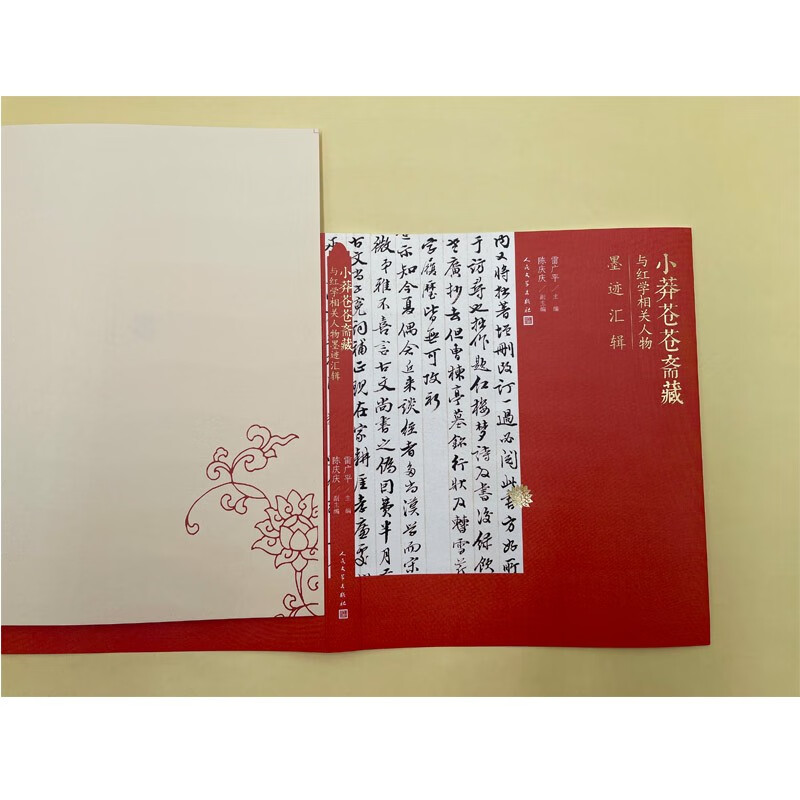 小莽苍苍斋藏
与红学相关人物
墨迹汇辑
雷广平／主编
陈庆庆／副主编
人民文学出版社
内又時拙著刪改訂一過必閱此書方如所
于訪尋也拙作題紅樓夢詩及書後錄飲
廣抄去但曹楝亭墓銘行狀及雪芹
字履歷皆無可攷祈
示知今夏偶會近來談經者多尚漢學而宋
微弟雅不喜言古文尚書之偽因費半月
古文尚書寃詞補正現在家耕孝廉處
小莽苍苍斋藏
与红学相关人物墨迹汇辑
雷广平 主编
陈庆庆 副主编
人民文学出版社